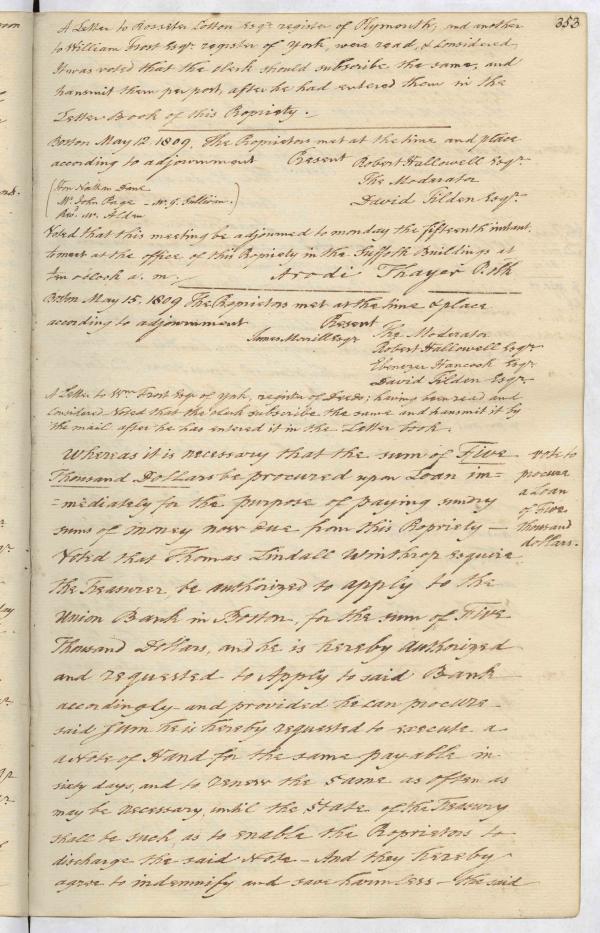 353
A Letter to Rosseter Cotton Esqr. register of Plymouth; and another
to William Frost Esqr. register of York, were read, & Considered,
It was voted that the clerk should subscribe the same, and
transmit them per post, after he had entered them in the
Letter Book of this Propriety.
Boston May 12. 1809. The Proprietors met at the time and place
according to adjournment Present Robert Hallowell Esqr.
The Moderator
Hon Nathan Dane David Tilden Esqr.
Mr. John Page - W. J. Sullivan.
Revd. Mr. Alden
Voted that this meeting be adjourned to monday the fifteenth instant,
to meet at the office of this Propriety in the Suffolk Buildings at
ten oClock a. m. Arodi Thayer P. Clk
Boston May 15. 1809 The Proprietors met at the time & place
according to adjournment Present
James Morrill Esqr The Moderator
Robert Hallowell Esqr
Ebenezer Hancock Esqr
David Tilden Esqr.
A Letter to Wm Frost Esqr of York, register of Deeds; having been read and
Considered Voted that the clerk subscribe the same and transmit it by
the mail after he has entered it in the Letter book.
Whereas it is necessary that the sum of Five
Thousand Dollars be procured upon Loan im=
=mediately for the purpose of paying sundry
sums of money now due from this Propriety —
Voted that Thomas Lindall Winthrop Esquire
the Treasurer, be authorized to apply to the
Union Bank in Boston, for the sum of Five
Thousand Dollars, and he is hereby authorized
and requested to Apply to said Bank
accordingly - and provided he can procure
said Sum he is hereby requested to execute a
a Note of Hand for the same payable in
sixty days, and to renew the same as often as
may be necessary, until the State of the Treasury
shall be such, as to enable the Proprietors to
discharge the said Note - And they hereby
agree to indemnify and save harmless - the said
vote to
procure
a Loan
of Five
thousand
dollars.